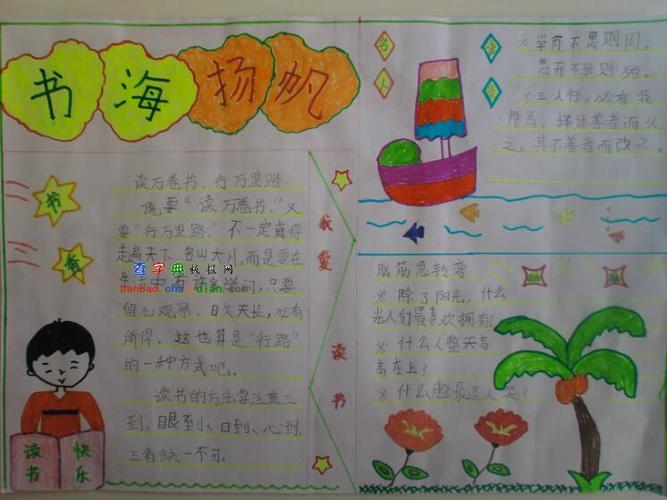 书海扬帆
名人名言
※学而不思则罔，
思而不学则殆。
※三人行，必有我
师焉，择其善者而从
之，其不善者而改之。
书香
读万卷书，行万里路
既要“读万卷书”，又
要“行万里路。”不一定真得
走遍天下名山大川，而是要在
生活中
只要
留心观察，日久天长，必有
所得。这也算是“行路”
的一种方式吧。
读书的方法要注意三
到，眼到、口到、心到
三者缺一不可。
查字典板报网
banbao.chazidian.com
我爱读书
读书快乐
脑筋急转弯
※除了阳光，什么
光人们最喜欢拥有？
※什么人整天高
高在上？
※什么脸最逗人笑？